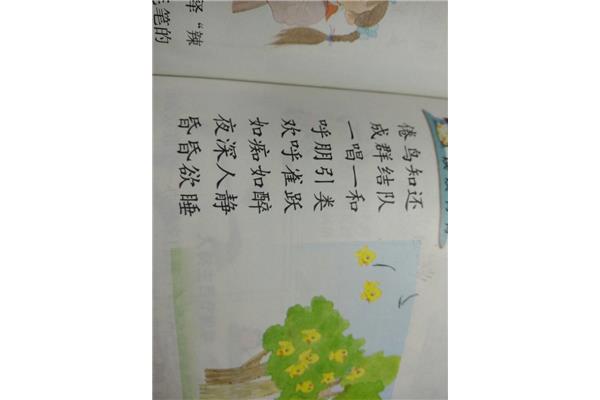 “辣
笔的
倦鸟知还
成群结队
一唱一和
呼朋引类
欢呼雀跃
如痴如醉
夜深人静
昏昏欲睡